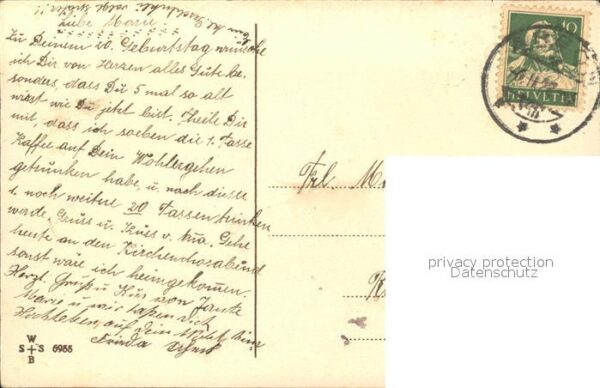 Liebe Marie!
Zu Deinem 20. Geburtstag wünsche
ich Dir von Herzen alles Gute be-
sonders, dass Du 5 mal so alt
wirst wie Du jetzt bist. Theile Dir
mit, dass ich soeben die 1. Tasse
Kaffee auf Dein Wohlergehen
getrunken habe, u. nach dieser
1. noch weitere 20 Tassen trinken
werde. Gruss u. Kuss v. Gehe
heute an den
sonst wäre ich heimgekommen.
Herzl. Gruss u. Kuss von Tante
Marie u. wir
Hochleben, auf Dein
Frieda
W
S S 6955
B
Frl. M
10
HELVETIA
privacy protection
Datenschutz